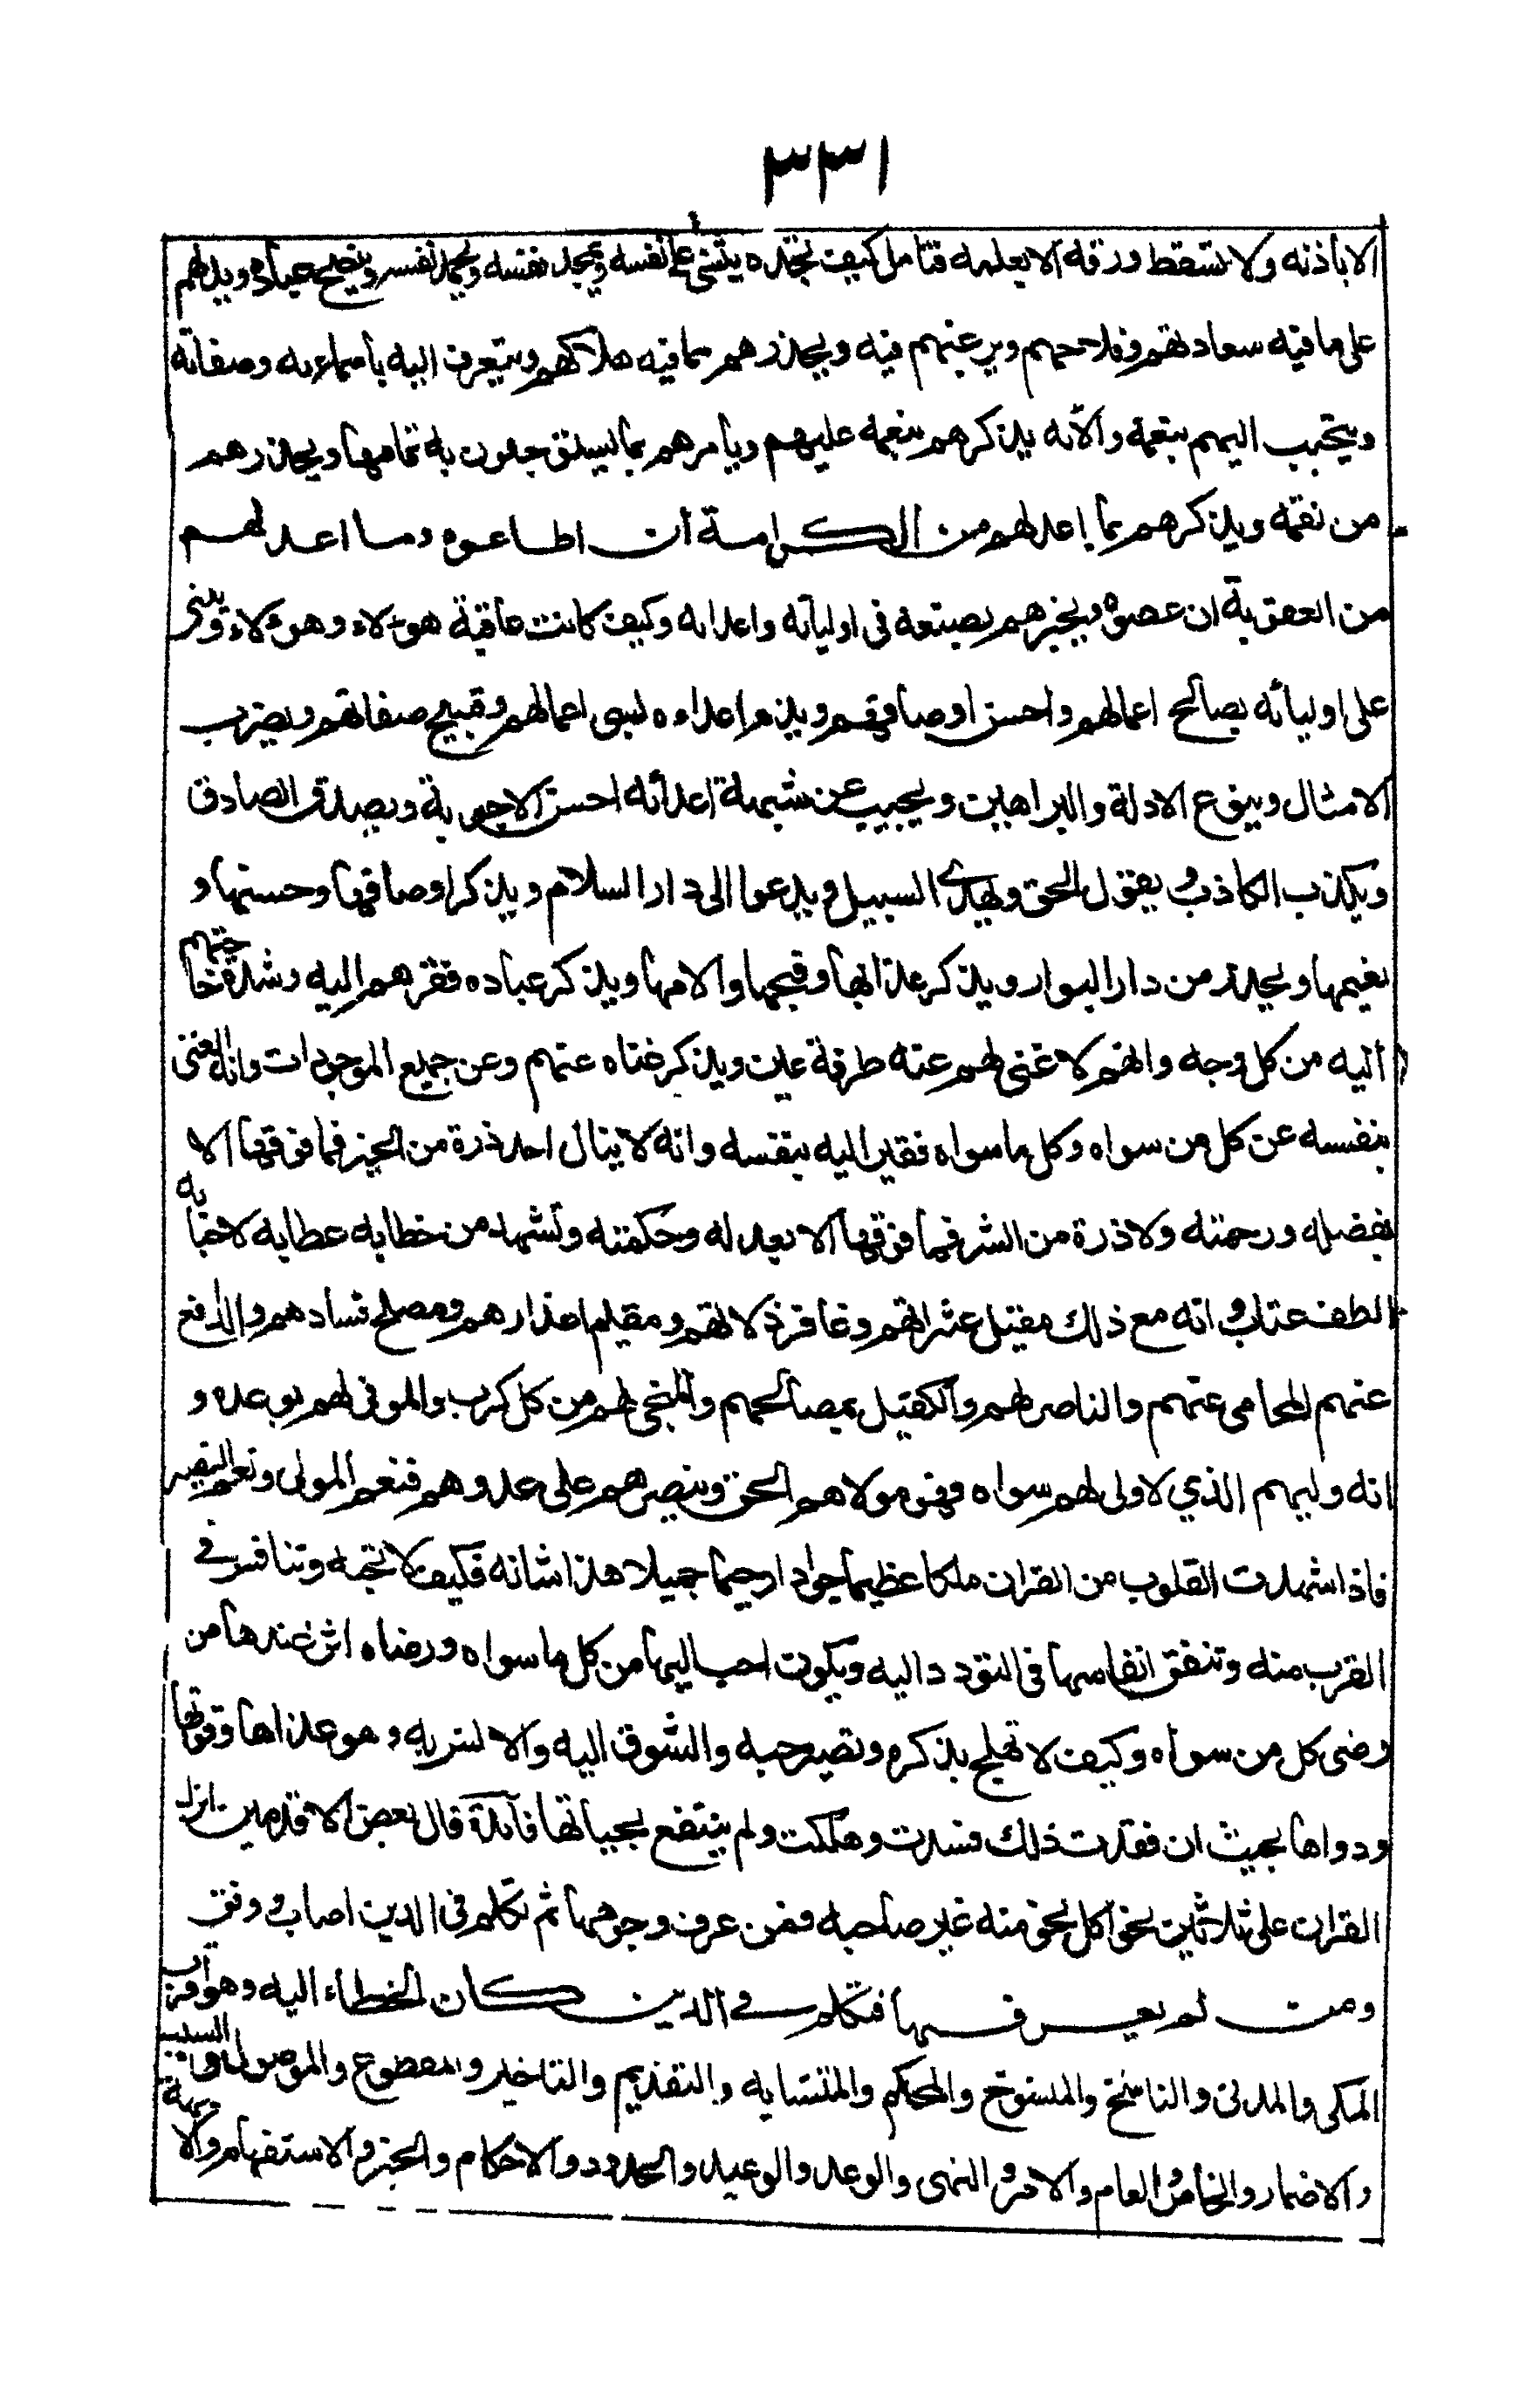 ٣٣١
الا باذنه ولا تسقط ورقه الا بعلمه فتامل كيف تجده يثني على نفسه ويمجد نفسه ويحمد نفسه وينصح عباده ويدلهم
على ما فيه سعادتهم وفلاحهم ويرغبهم فيه ويحذرهم مما فيه هلاكهم ويتعرف اليه باسمائه وصفاته
ويتحبب اليهم بنعمه والآئه يذكرهم بنعمه عليهم ويأمرهم بما يستوجبون به تمامها ويحذرهم
من نقمه ويذكرهم بما اعد لهم من الكرامة ان اطاعوه وما اعد لهم
من العقوبة ان عصوه ويخبرهم بصنعه في اوليآئه واعدائه وكيف كانت عاقبة هولاء وهولاء ويثني
على اوليائه بصالح اعمالهم واحسن اوصافهم ويذم اعداءه لسيي اعمالهم وقبيح صفاتهم ويضرب
الامثال وينوع الادلة والبراهين ويجيب عن شبهة اعدائه احسن الاجوبة ويصدق الصادق
ويكذب الكاذب ويقول الحق ويهدي السبيل ويدعوا الى دار السلام ويذكر اوصافها وحسنها و
نعيمها ويحذر من دار البوار ويذكر عذابها وقبحها والامها ويذكر عباده فقرهم اليه وشدة حاجتهم
اليه من كل وجه وانهم لا غنى لهم عنه طرفة عين ويذكر غناه عنهم وعن جميع الموجودات وانه الغني
بنفسه عن كل من سواه وكل ما سواه فقير اليه بنفسه وانه لا ينال احد ذرة من الخير فما فوقها الا
بفضله ورحمته ولا ذرة من الشر فما فوقها الا بعدله وحكمته وتشهد من خطابه عطابه لاحبابه
الطف عتاب وانه مع ذلك مقيل عثراتهم وغافر ذلاتهم ومقيم اعذارهم ومصلح فسادهم والدافع
عنهم المحامي عنهم والناصر لهم والكفيل بمصالحهم والمنجي لهم من كل كرب والموفي لهم بوعده و
انه وليهم الذي لا ولى لهم سواه فهو مولاهم الحق وينصرهم على عدوهم فنعم المولى ونعم النصير
فاذا شهدت القلوب من القران ملكا عظيما جوادا رحيما جميلا هذا شانه فكيف لا تحبه وتنافس في
القرب منه وتنفق انفاسها في التودد اليه ويكون احب اليها من كل ما سواه ورضاه اثر عندها من
رضى كل من سواه وكيف لا تلهج بذكره وتصير حبه والشوق اليه والانس به وهو غذاها وقوتها
ودواها بحيث ان فقدت ذلك فسدت وهلكت ولم ينتفع بحياتها فآئدة قال بعض الاقدمين انزل
القران على ثلاثين نحوا كل نحو منه غير صاحبه فمن عرف وجوهها ثم تكلم في الدين اصاب ووفق
ومن لم يعرفها فتكلم في الدين كان الخطاء اليه وهو اقرب
المكي والمدني والناسخ والمنسوخ والمحكم والمتشابه والتقديم والتاخير والمقطوع والموصول والسبب
والاضمار والخاص والعام والامر والنهى والوعد والوعيد والحدود والاحكام والخبر والاستفهام والا